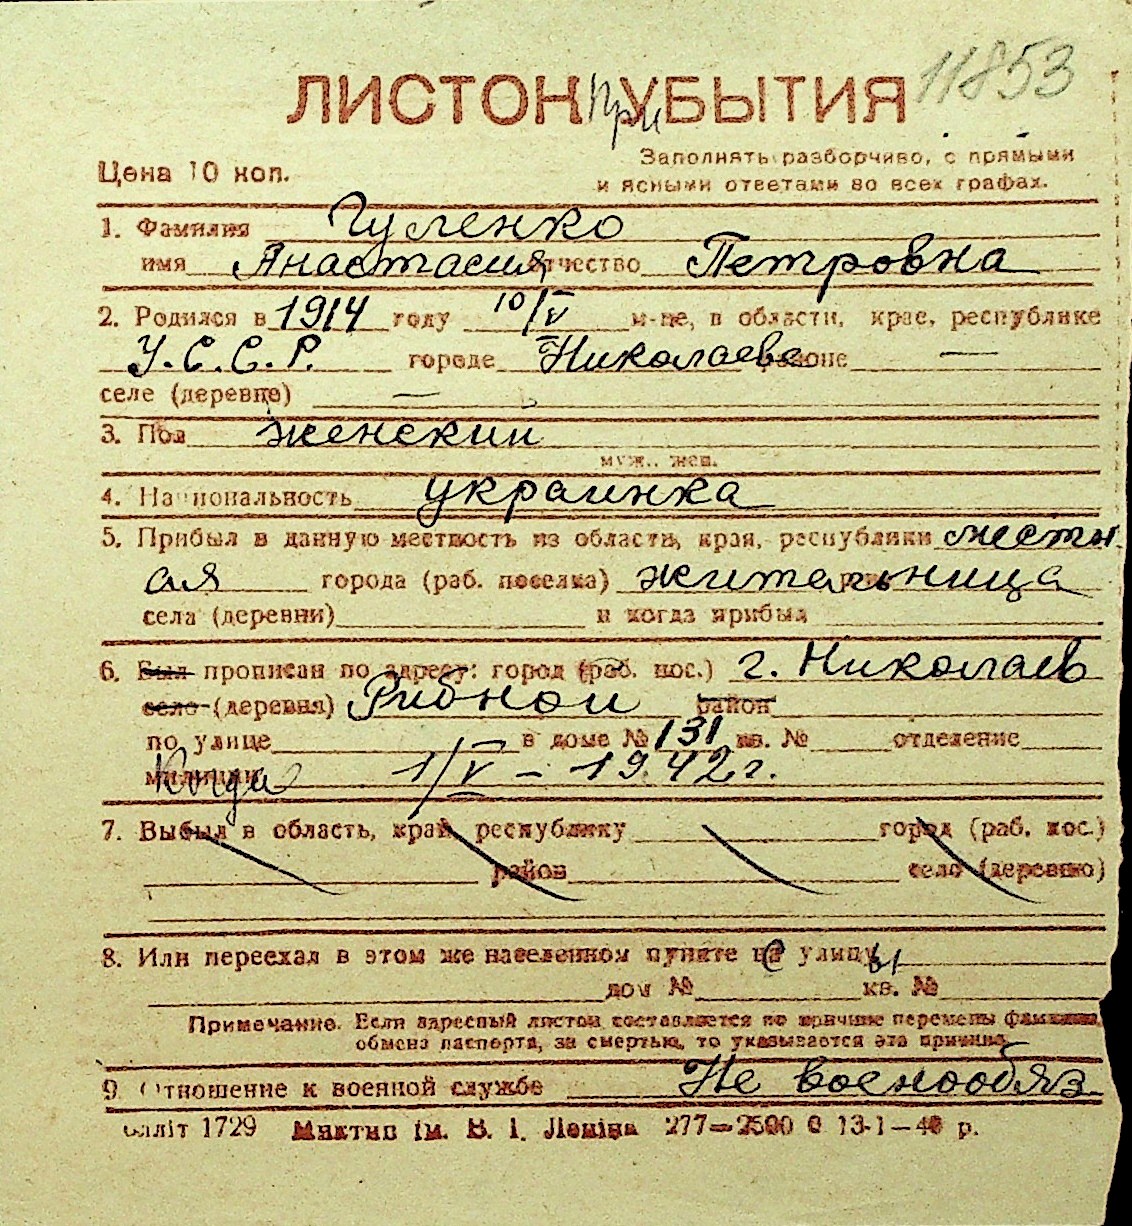 11853
ЛИСТОК при УБЫТИЯ
Цена 10 коп.
Заполнять разборчиво, с прямыми
и ясными ответами во всех графах.
1. Фамилия Гуленко
имя Анастасия отчество Петровна
2. Родился в 1914 году 10/V м-це, в области, крае, республике
У.С.С.Р. городе Николаеве районе —
селе (деревне) —
3. Пол женский
муж., жен.
4. Национальность украинка
5. Прибыл в данную местность из области, края, республики местн
ая города (раб. поселка) жительница
села (деревни) и когда прибыл
6. Был прописан по адресу: город (раб. пос.) г. Николаев
село (деревня) Рибной район
по улице в доме № 131 кв. № отделение
милиции Когда 1/V – 1942 г.
7. Выбыл в область, край, республику город (раб. пос.)
район село (деревню)
8. Или переехал в этом же населенном пункте с улицы
дом № кв. №
Примечание. Если адресный листок составляется по причине перемены фамилии,
обмена паспорта, за смертью, то указывается эта причина.
9 Отношение к военной службе Не военнообяз
лліт 1729 ім. В. І. Леніна 277—2500 0 13-1—40 р.